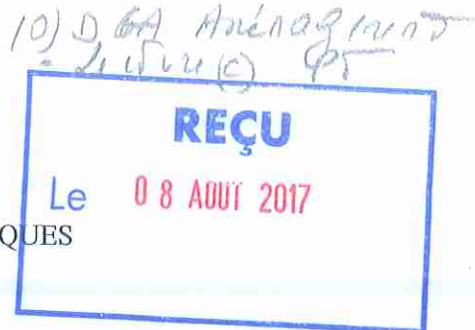 10) DGA Aménagement
REÇU
Le 08 AOUT 2017
QUES